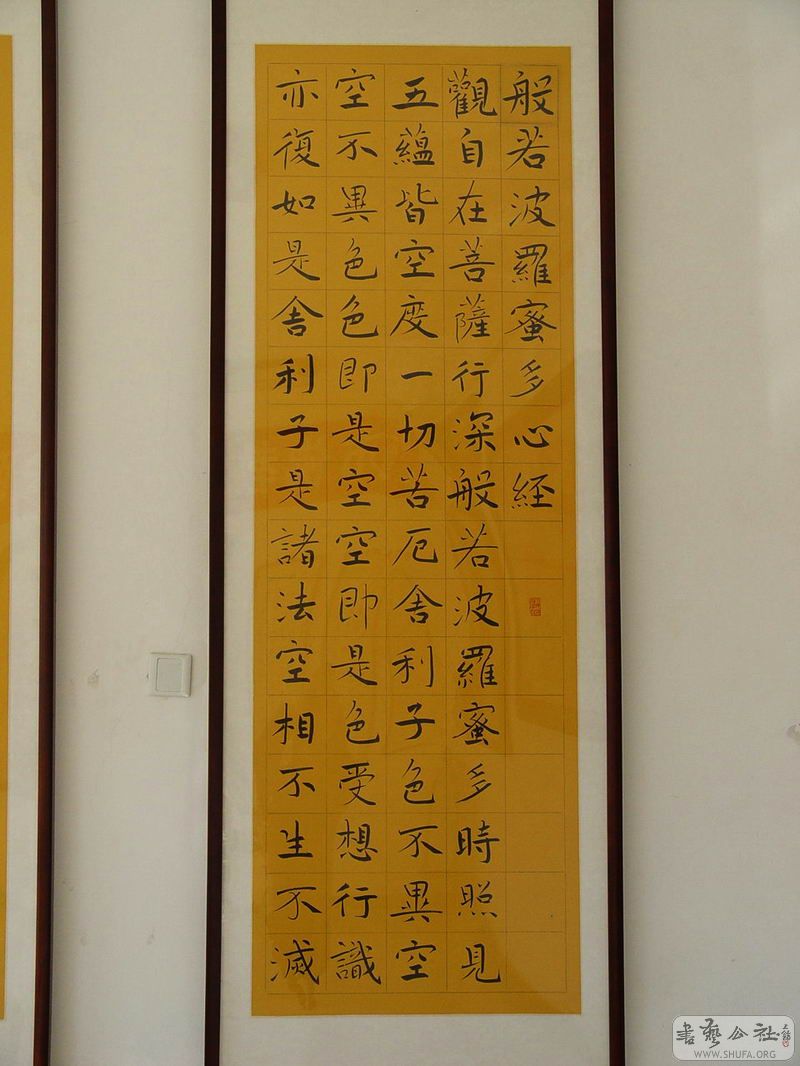 般若波羅蜜多心経
觀自在菩薩行深般若波羅蜜多時照見
五蘊皆空度一切苦厄舍利子色不異空
空不異色色即是空空即是色受想行識
亦復如是舍利子是諸法空相不生不滅
書藝公社
WWW.SHUFA.ORG